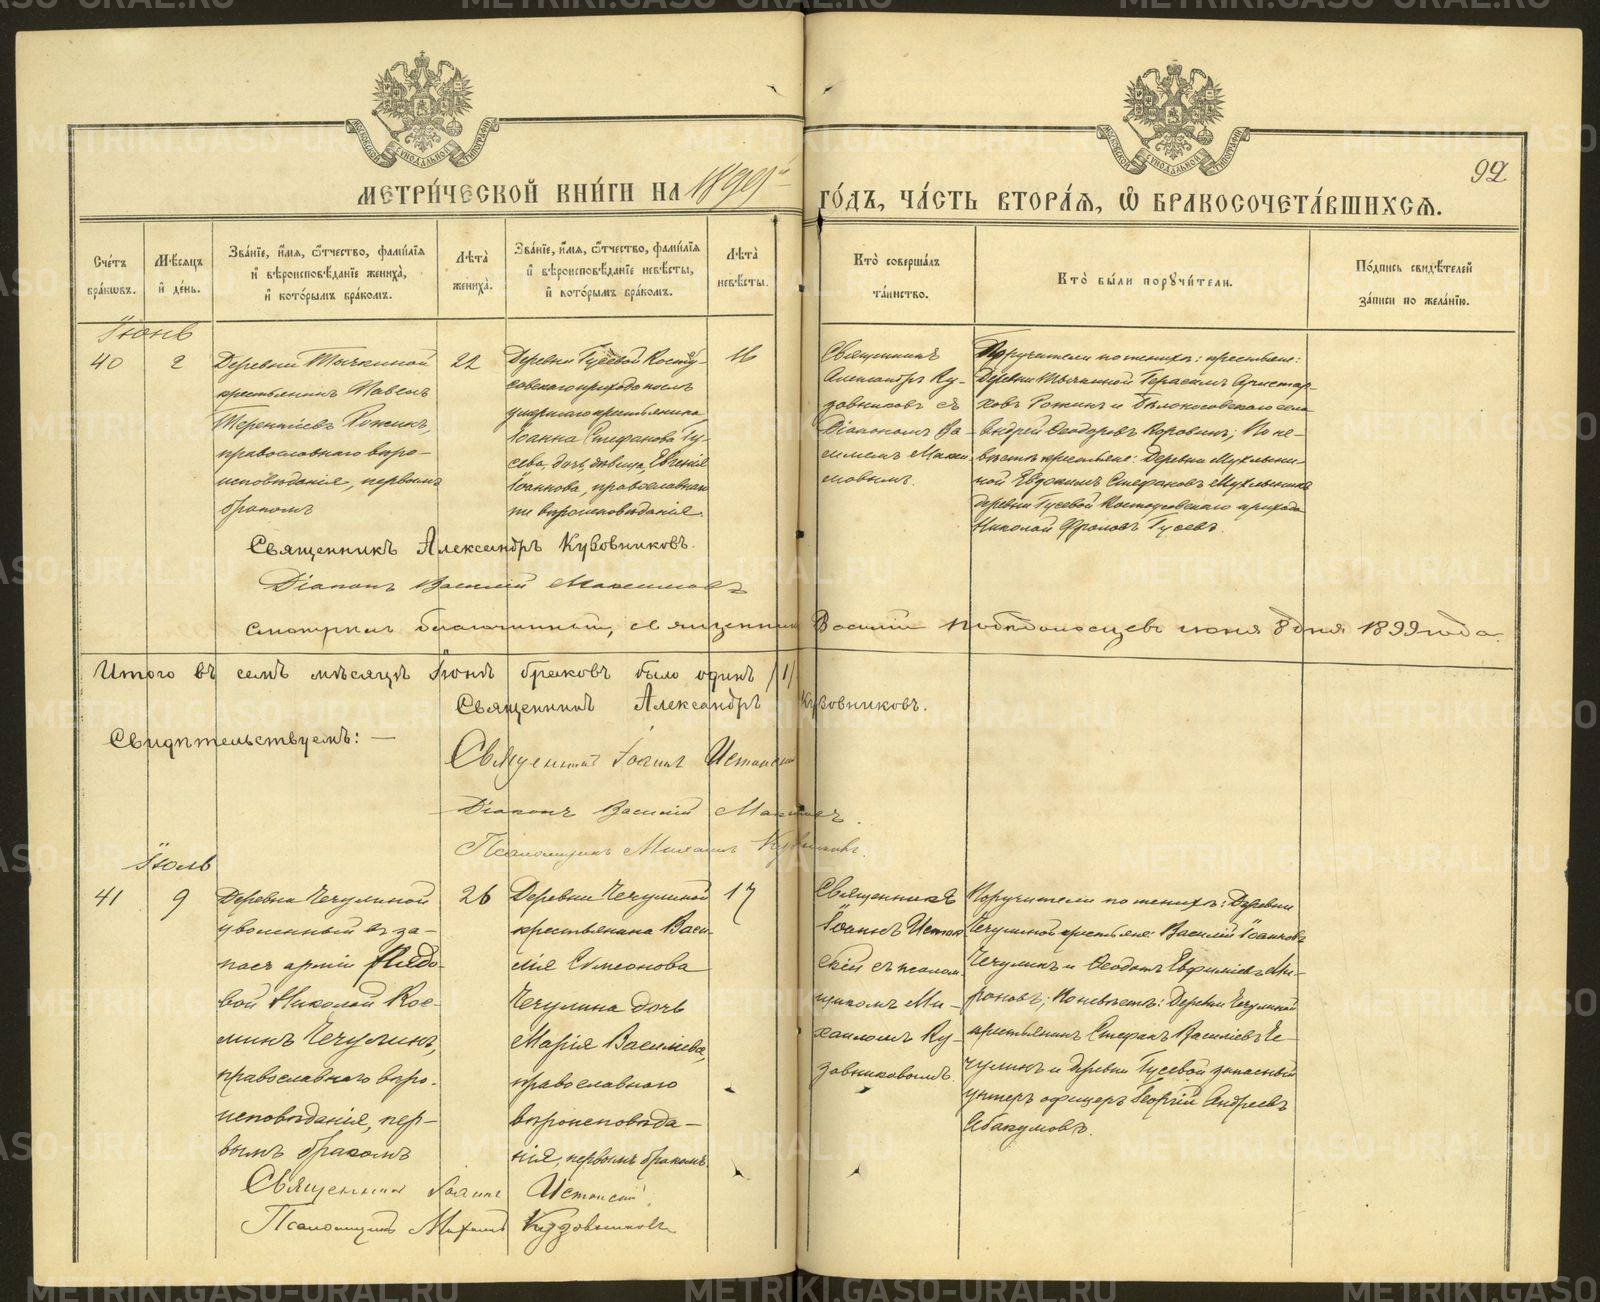 МЕТРИ́ЧЕСКОЙ КНИ́ГИ НА 1899й ГО́ДЪ, ЧА́СТЬ ВТОРА́Я, Ѡ БРАКОСОЧЕТА́ВШИХСЯ.
92
Сче́тъ бра́кѡвъ.
Мѣ́сяцъ и де́нь.
Зва́нїе, и́мя, ѻ́тчество, фами́лїя и вѣроисповѣ́данїе жениха̀, и кото́рымъ бра́комъ.
Лѣ́та жениха̀.
Зва́нїе, и́мя, ѻ́тчество, фами́лїя и вѣроисповѣ́данїе невѣ́сты, и кото́рымъ бра́комъ.
Лѣ́та невѣ́сты.
Кто̀ соверша́лъ та́инство.
Кто̀ бы́ли порꙋчи́тели.
По́дпись свидѣ́телей за́писи по жела́нїю.
Іюнь
40
2
Деревни Тычкиной
крестьянинъ Павелъ
Терентіевъ Рожинъ,
православнаго вѣро-
исповѣданія, первымъ
бракомъ
22
Деревни Гусевой Косто-
усовскаго прихода послѣ
умершаго крестьянина
Іоанна Стефанова Гу-
сева, дочь, дѣвица, Евгенія
Іоаннова, православна-
го вѣроисповѣданія.
16
Священникъ
Александръ Ку-
зовниковъ съ
Діакономъ Ва-
силіемъ Макси-
мовымъ.
Поручители по женихѣ: крестьяне:
Деревни Тычкиной Герасимъ Аристар-
ховъ Рожинъ и Бѣлоносовскаго села
Андрей Ѳеодоровъ Коровинъ; По не-
вѣстѣ крестьяне: Деревни Мухлыни-
ной Евдокимъ Стефановъ Мухлынинъ
деревни Гусевой Костоусовскаго прихода
Николай Фроловъ Гусевъ.
Священникъ Александръ Кузовниковъ.
Діаконъ Василій Максимовъ
Смотрѣлъ благочинный, священникъ Василій Побѣдоносцевъ іюня 8 дня 1899 года.
Итого въ семъ мѣсяцѣ Іюнѣ браковъ было одинъ /1/
Священникъ Александръ Кузовниковъ.
Свидѣтельствуемъ: —
Священникъ Іоаннъ Истокскій
Діаконъ Василій Максимовъ.
Псаломщикъ Михаилъ Кузовниковъ.
Іюль
41
9
Деревни Чечулиной
уволенный въ за-
пасъ арміи Рядо-
вой Николай Кос-
минъ Чечулинъ,
православнаго вѣро-
исповѣданія, пер-
вымъ бракомъ
26
Деревни Чечулиной
крестьянина Васи-
лія Симеонова
Чечулина дочь
Марія Васильева,
православнаго
вѣроисповѣда-
нія, первымъ бракомъ.
17
Священникъ
Іоаннъ Исток
скій съ псалом-
щикомъ Ми-
хаиломъ Ку-
зовниковымъ.
Поручители по женихѣ: Деревни
Чечулиной крестьяне: Василій Іоанновъ
Чечулинъ и Ѳеодотъ Евфиміевъ
по невѣстѣ: Деревни Чечулиной
крестьянинъ Стефанъ Васильевъ Че-
чулинъ и деревни Гусевой запасный
унтеръ офицеръ Георгій Андреевъ
Абакумовъ.
Священникъ Іоаннъ Истокскій
Псаломщикъ Михаилъ Кузовниковъ
METRIKI.GASO-URAL.RU